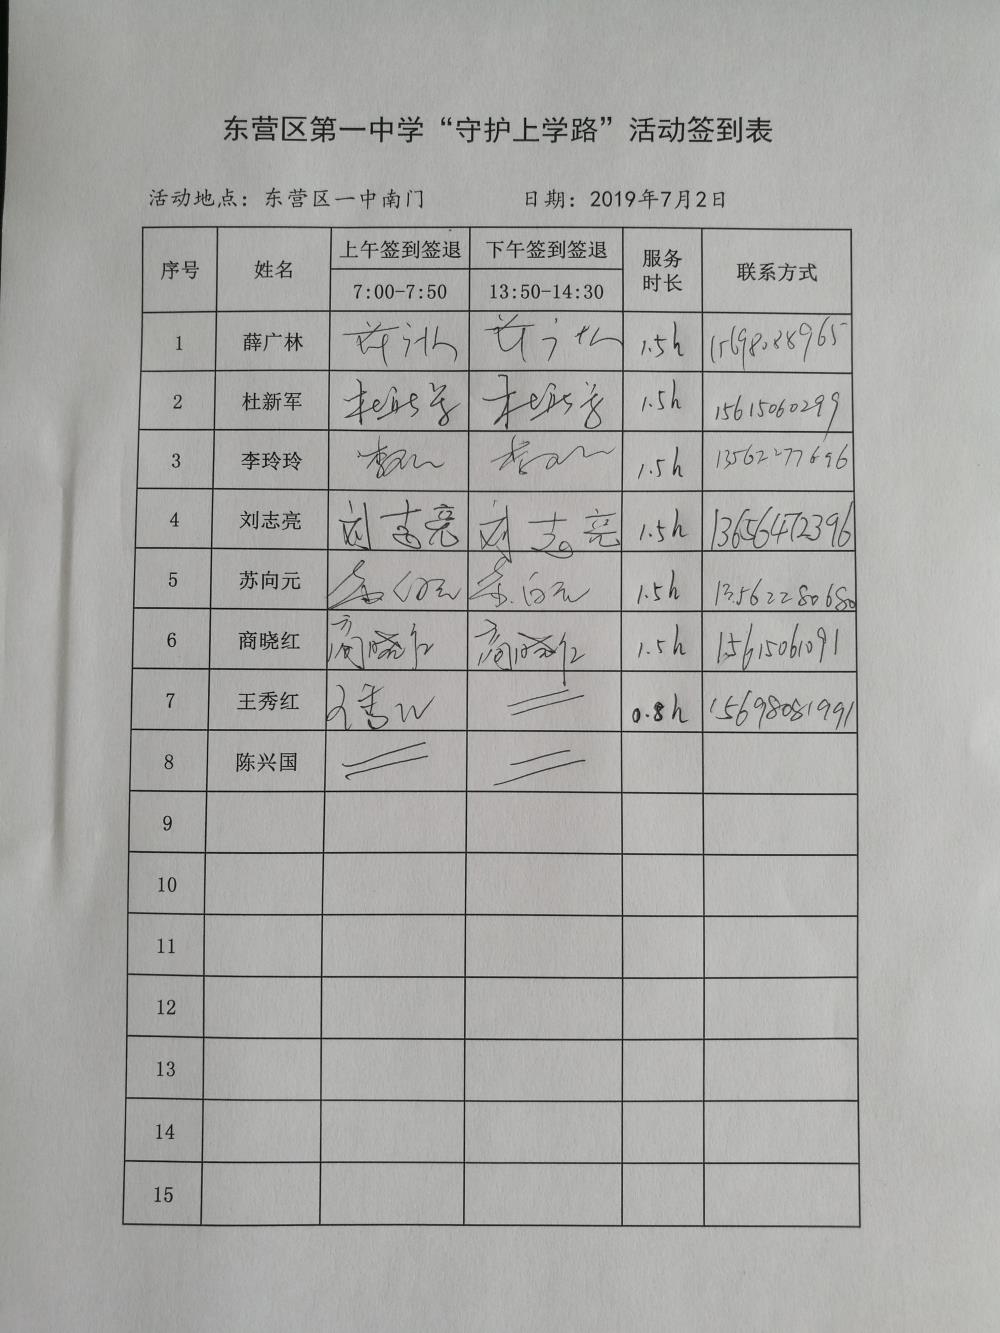 东营区第一中学“守护上学路”活动签到表
活动地点：东营区一中南门 日期：2019年7月2日
序号 姓名 上午签到签退 下午签到签退 服务时长 联系方式
7:00-7:50 13:50-14:30
1 薛广林 薛广林 薛广林 1.5h 15698088965
2 杜新军 杜新军 杜新军 1.5h 15615060299
3 李玲玲 1.5h 13562277696
4 刘志亮 刘志亮 刘志亮 1.5h 13656472396
5 苏向元 苏向元 苏向元 1.5h 13562280680
6 商晓红 商晓红 商晓红 1.5h 15615061091
7 王秀红 王秀红 0.8h 15698081991
8 陈兴国
9
10
11
12
13
14
15